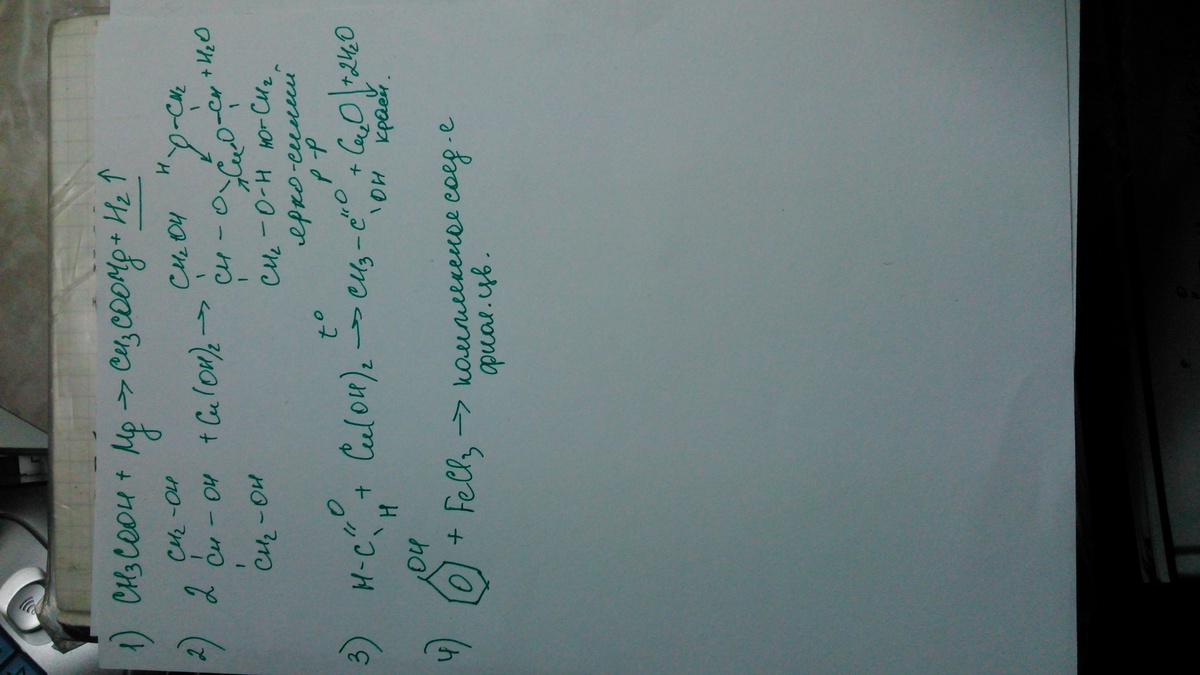 1) CH3COOH + Mg → CH3COOMg + H2↑
CH2-OH CH2OH H O-CH2
2) 2 CH-OH + Cu(OH)2 → CH-O Cu O-CH + H2O
CH2-OH CH2-O-H HO-CH2
ярко-синий
р-р
3) H-C=O H + Cu(OH)2 t° → CH3-C=O OH + Cu2O↓ + 2H2O
красн.
4) OH + FeCl3 → комплексное соед-е
фиол. цв.